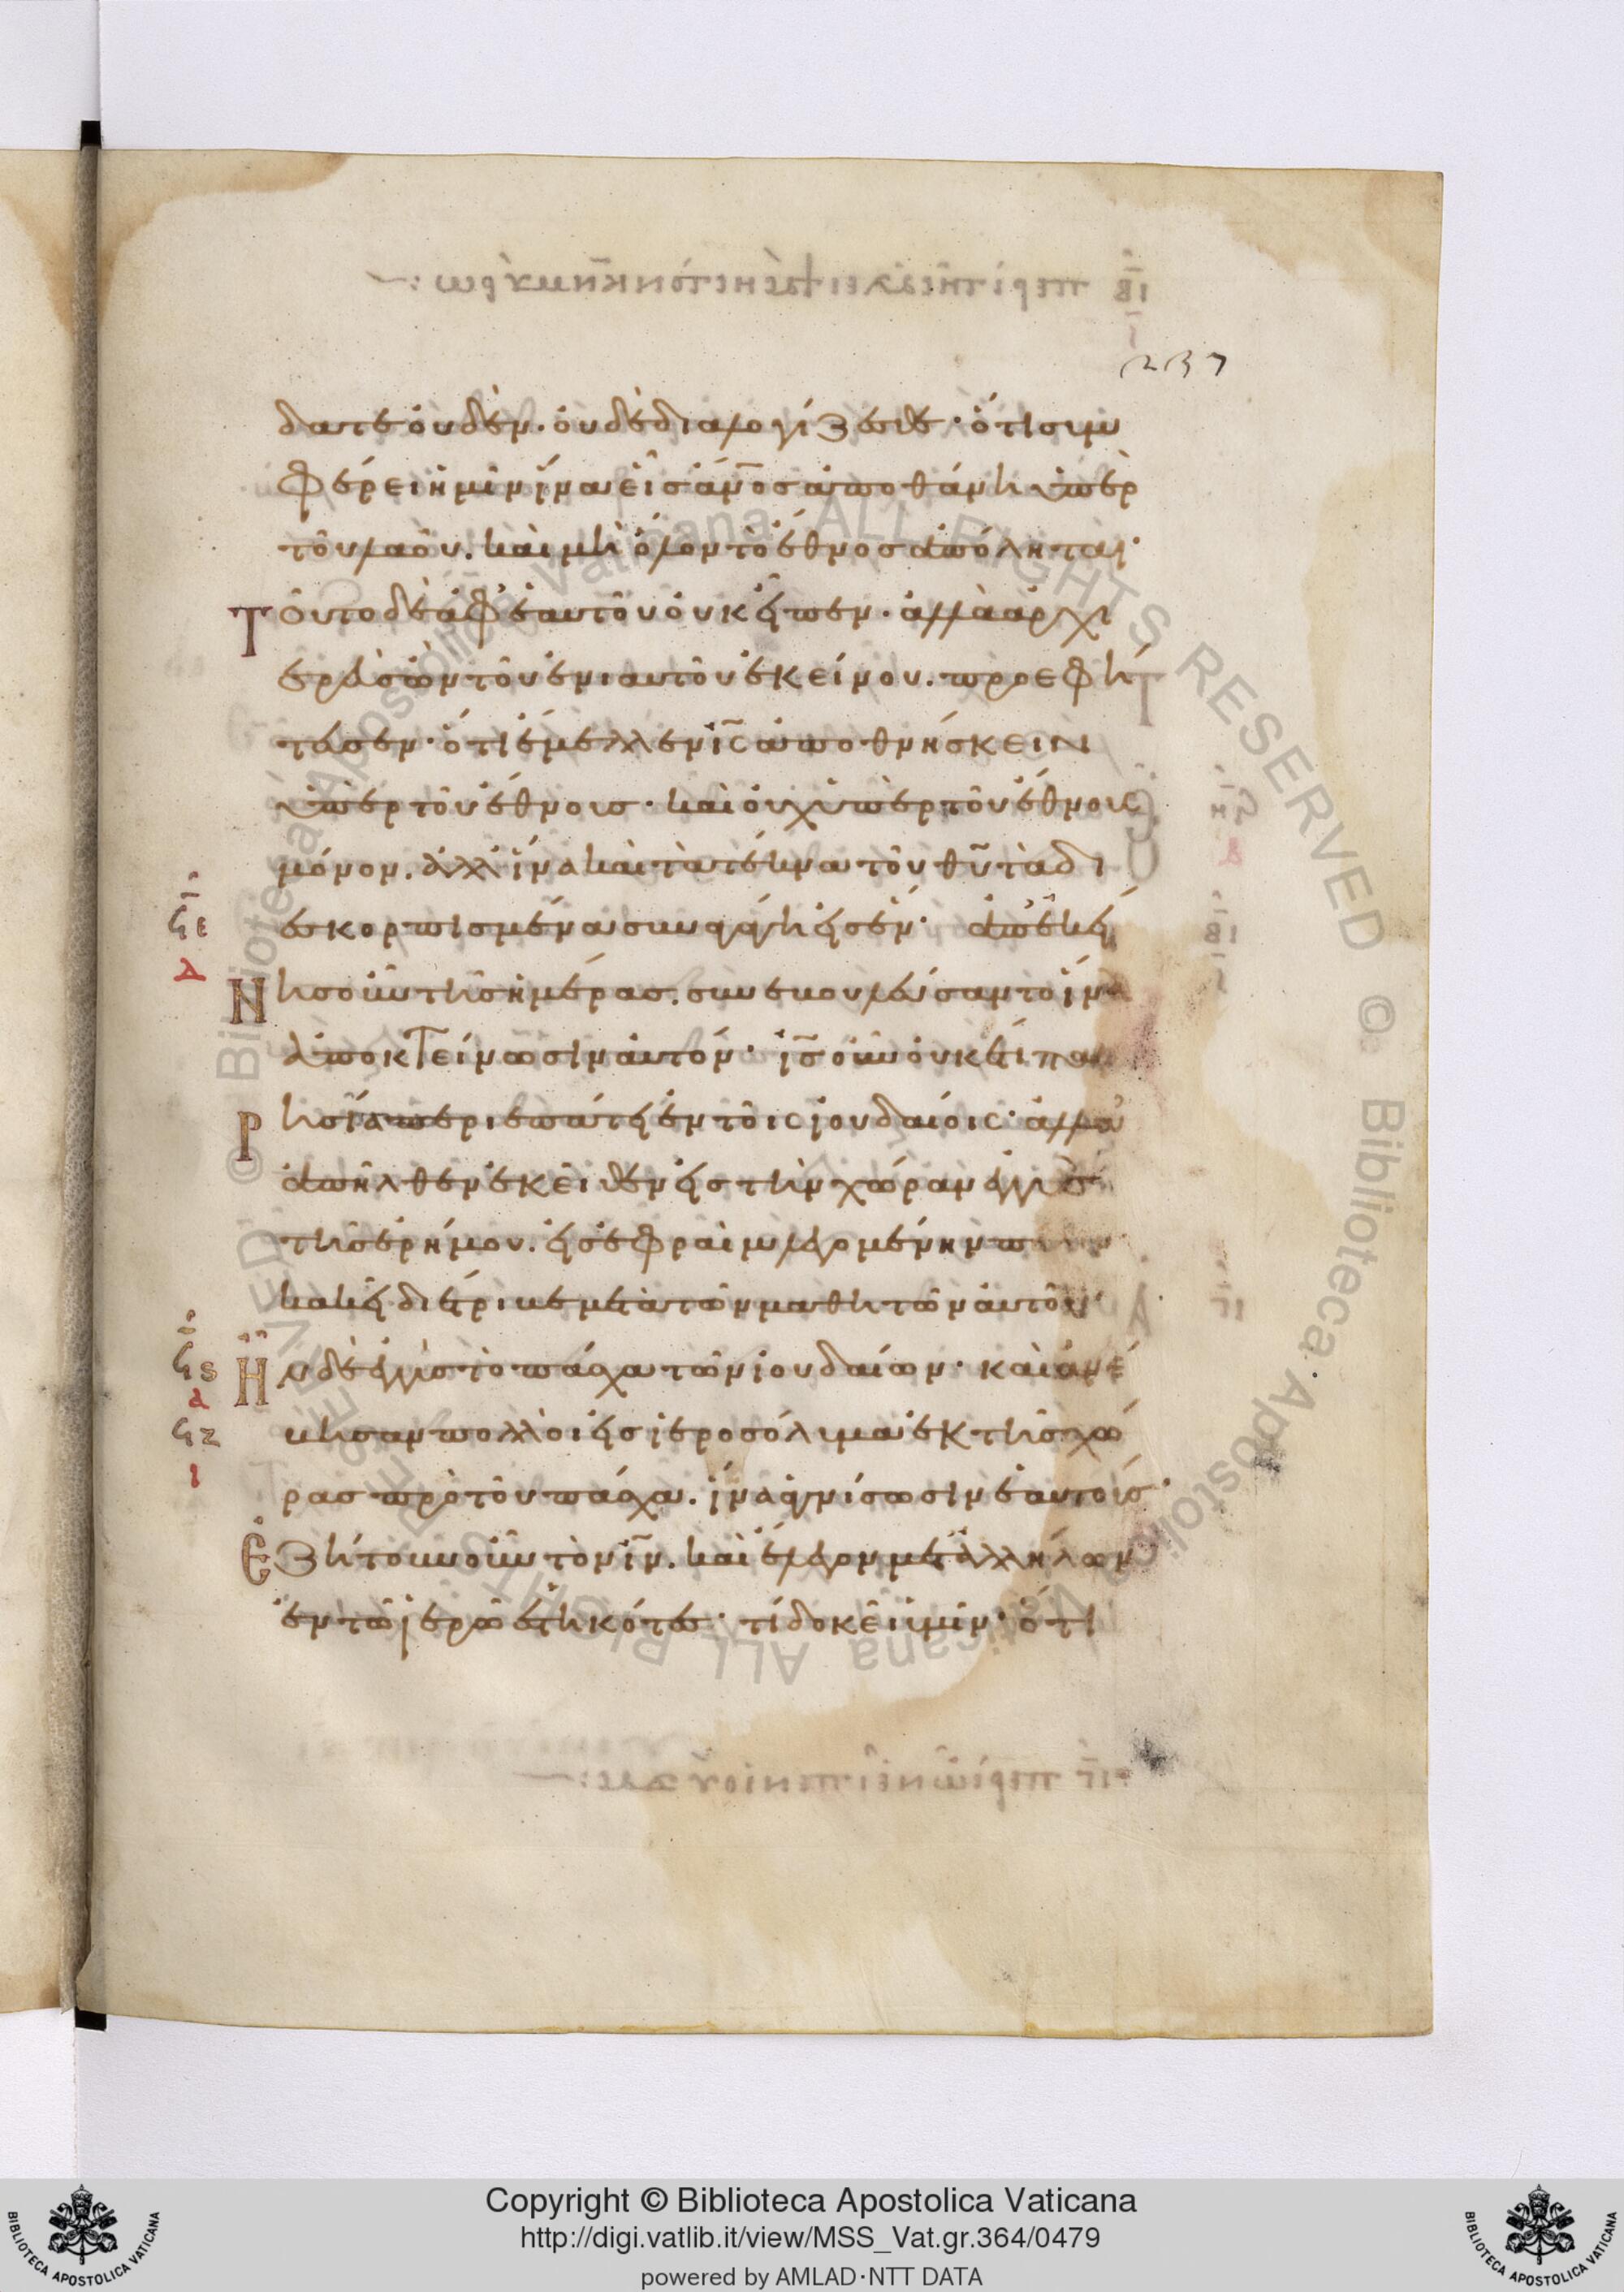 237
δατε ὀυδέν. ὀυδὲ διαλογίζεσθε· ὅτι συμ
φέρει ἡμῖν ἵνα εἷς ἄνος ἀποθάνη ὑπὲρ
τοῦ λαοῦ. καὶ μὴ ὅλον τὸ ἔθνος ἀπόληται·
Τοῦτο δὲ ἀφ' ἑαυτοῦ ὀυκ εἶπεν. ἀλλὰ ἀρχι
ερεὺς ὢν τοῦ ἐνιαυτοῦ ἐκείνου. προεφή
τευσεν· ὅτι ἔμελλεν ις ἀποθνήσκειν
ὑπὲρ τοῦ ἔθνους· καὶ ὀυχ ὑπὲρ τοῦ ἔθνους
μόνον. ἀλλ' ἵνα καὶ τὰ τέκνα τοῦ θυ τὰ δι
ϟε
δ
εσκορπισμένα συναγάγη εἰς ἕν· ἀπ' ἐκεί
Νης οὖν τῆς ἡμέρας. συνεβουλεύσαντο ἵνα
ἀποκτείνωσιν ἀυτόν· ις οὖν ὀυκέτι παρ
Ρησία περιεπάτει ἐν τοῖς ἰουδαίοις· ἀλλὰ
ἀπῆλθεν ἐκεῖθεν εἰς τὴν χώραν ἐγγὺς
τῆς ἐρήμου. εἰς ἐφραὶμ λεγομένην πόλιν
κακεῖ διέτριβε μετὰ τῶν μαθητῶν ἀυτοῦ·
ϟς
α
Ἦν δὲ ἐγγὺς τὸ πάσχα τῶν ἰουδαίων· καὶ ἀνέ
ϟζ
ι
βησαν πολλοὶ εἰς ἱεροσόλυμα ἐκ τῆς χώ
ρας πρὸ τοῦ πάσχα. ἵνα ἁγνίσωσιν ἑαυτούς·
Ἐζήτουν οὖν τὸν ιν. καὶ ἔλεγον μετ' ἀλλήλων
ἐν τῶ ἱερῶ ἑστηκότες· τί δοκεῖ ὑμῖν· ὅτι
Copyright © Biblioteca Apostolica Vaticana
http://digi.vatlib.it/view/MSS_Vat.gr.364/0479
powered by AMLAD·NTT DATA
BIBLIOTECA APOSTOLICA VATICANA
BIBLIOTECA APOSTOLICA VATICANA